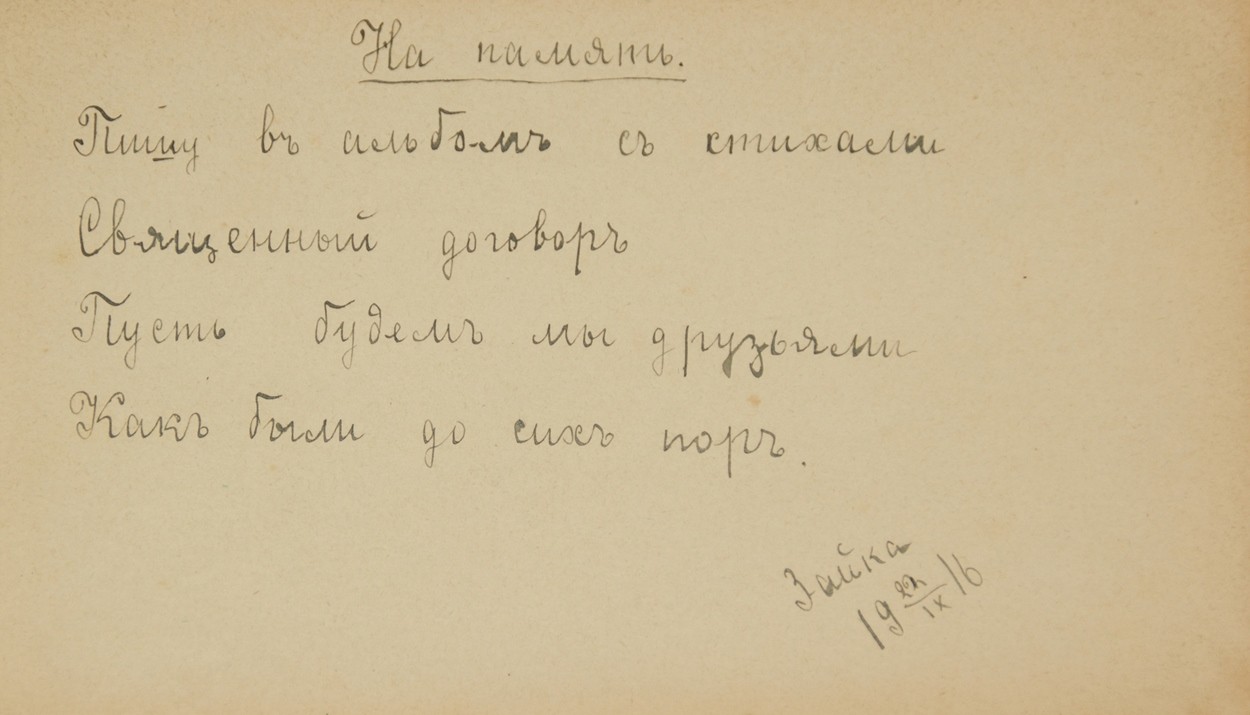 На память.
Пишу въ альбомъ съ стихами
Священный договоръ
Пусть будемъ мы друзьями
Какъ были до сихъ поръ.
Зайка
19 22/IX 16